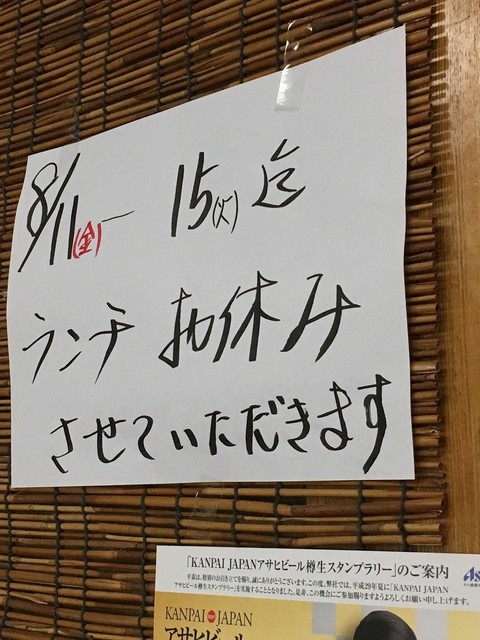 8/11(金)― 15(火)迄
ランチ お休み
させていただきます
「KANPAI JAPANアサヒビール樽生スタンプラリー」のご案内
平素は、格別のお引き立てを賜り、誠にありがとうございます。この度、弊社では、平成29年夏に「KANPAI JAPAN
アサヒビール樽生スタンプラリー」を実施することとなりました。是非、この機会にご参加賜りますようよろしくお願い申し上げます。
KANPAI JAPAN
アサヒビール